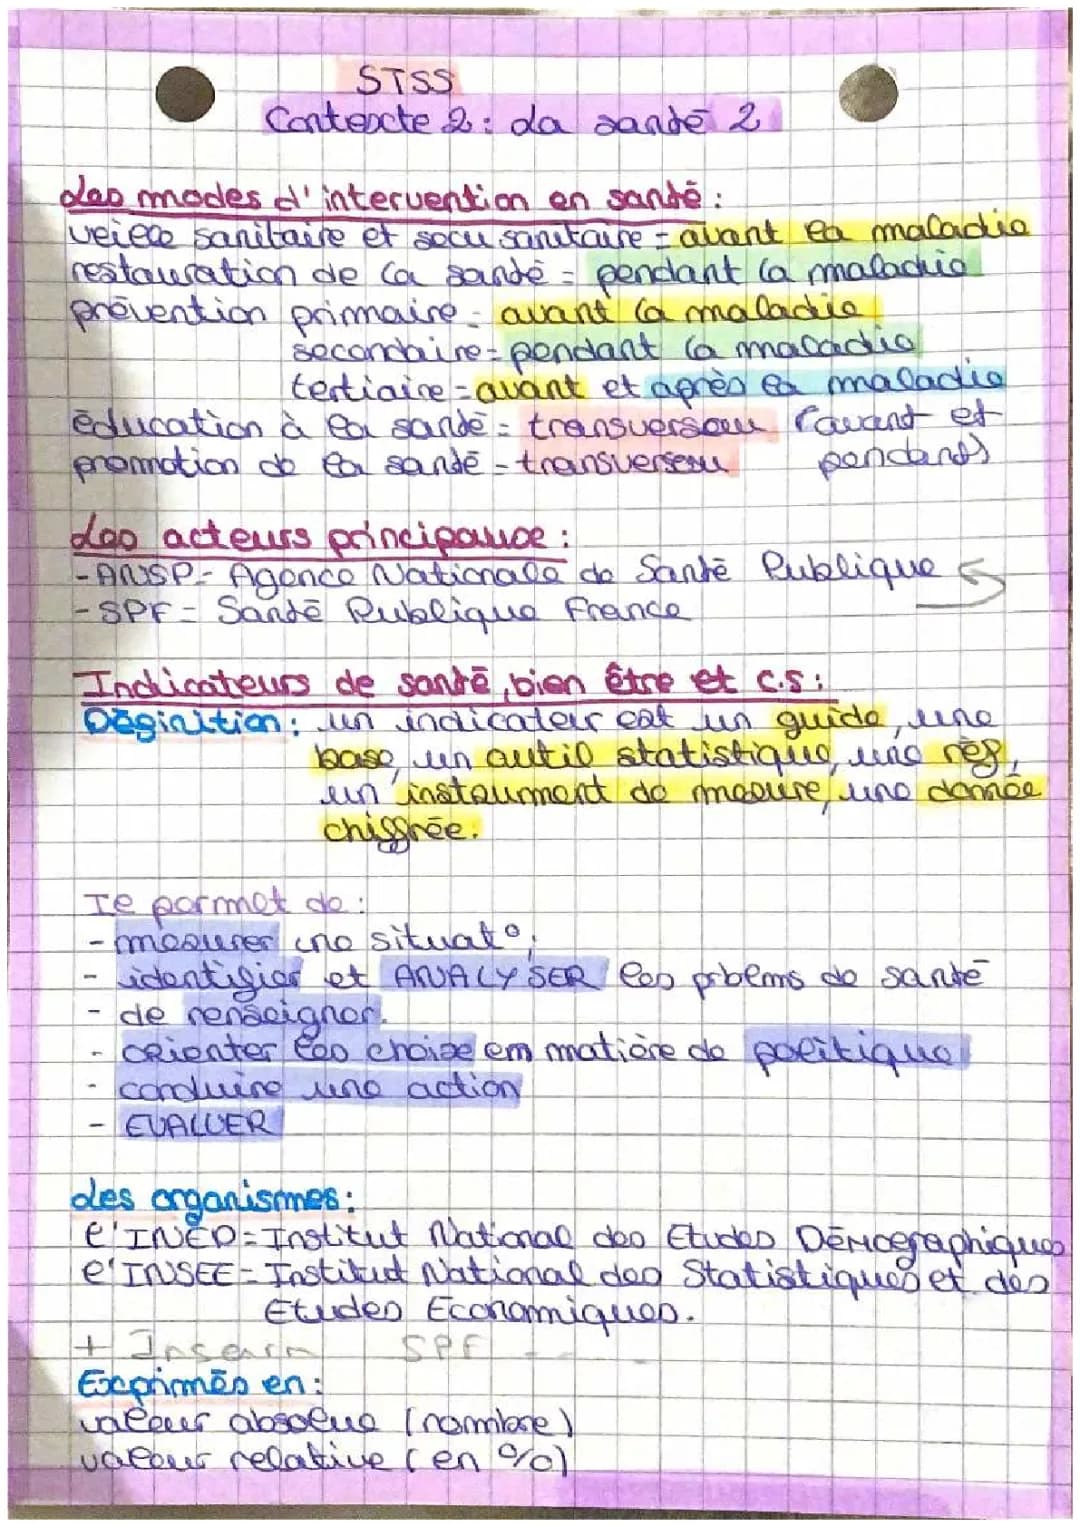 STSS
Contexte 2 : La santé 2
Les modes d'intervention en santé :
veille sanitaire et secu sanitaire = avant la maladie
restauration de la santé = pendant la maladie
prévention primaire = avant la maladie
secondaire = pendant la maladie
tertiaire = avant et après la maladie
éducation à la santé = transversau (avant et
promotion de la santé = transversau pendant)
Les acteurs principaux :
- ANSP = Agence Nationale de Santé Publique
- SPF = Santé Publique France
Indicateurs de santé, bien être et c.s :
Définition : un indicateur est un guide, une
base, un outil statistique, une réf,
un instrument de mesure, une donnée
chiffrée.
Il permet de :
- mesurer une situat°,
- identifier et ANALYSER les prblems de santé
- de renseigner.
- orienter les choix em matière de politique
- conduire une action
- EVALUER
Les organismes :
l'INED = Institut National des Etudes Démographiques
l'INSEE = Institut National des Statistiques et des
Etudes Economiques.
+ Inserm SPF ...
Exprimés en :
valeur absolue (nombre)
valeur relative (en %)